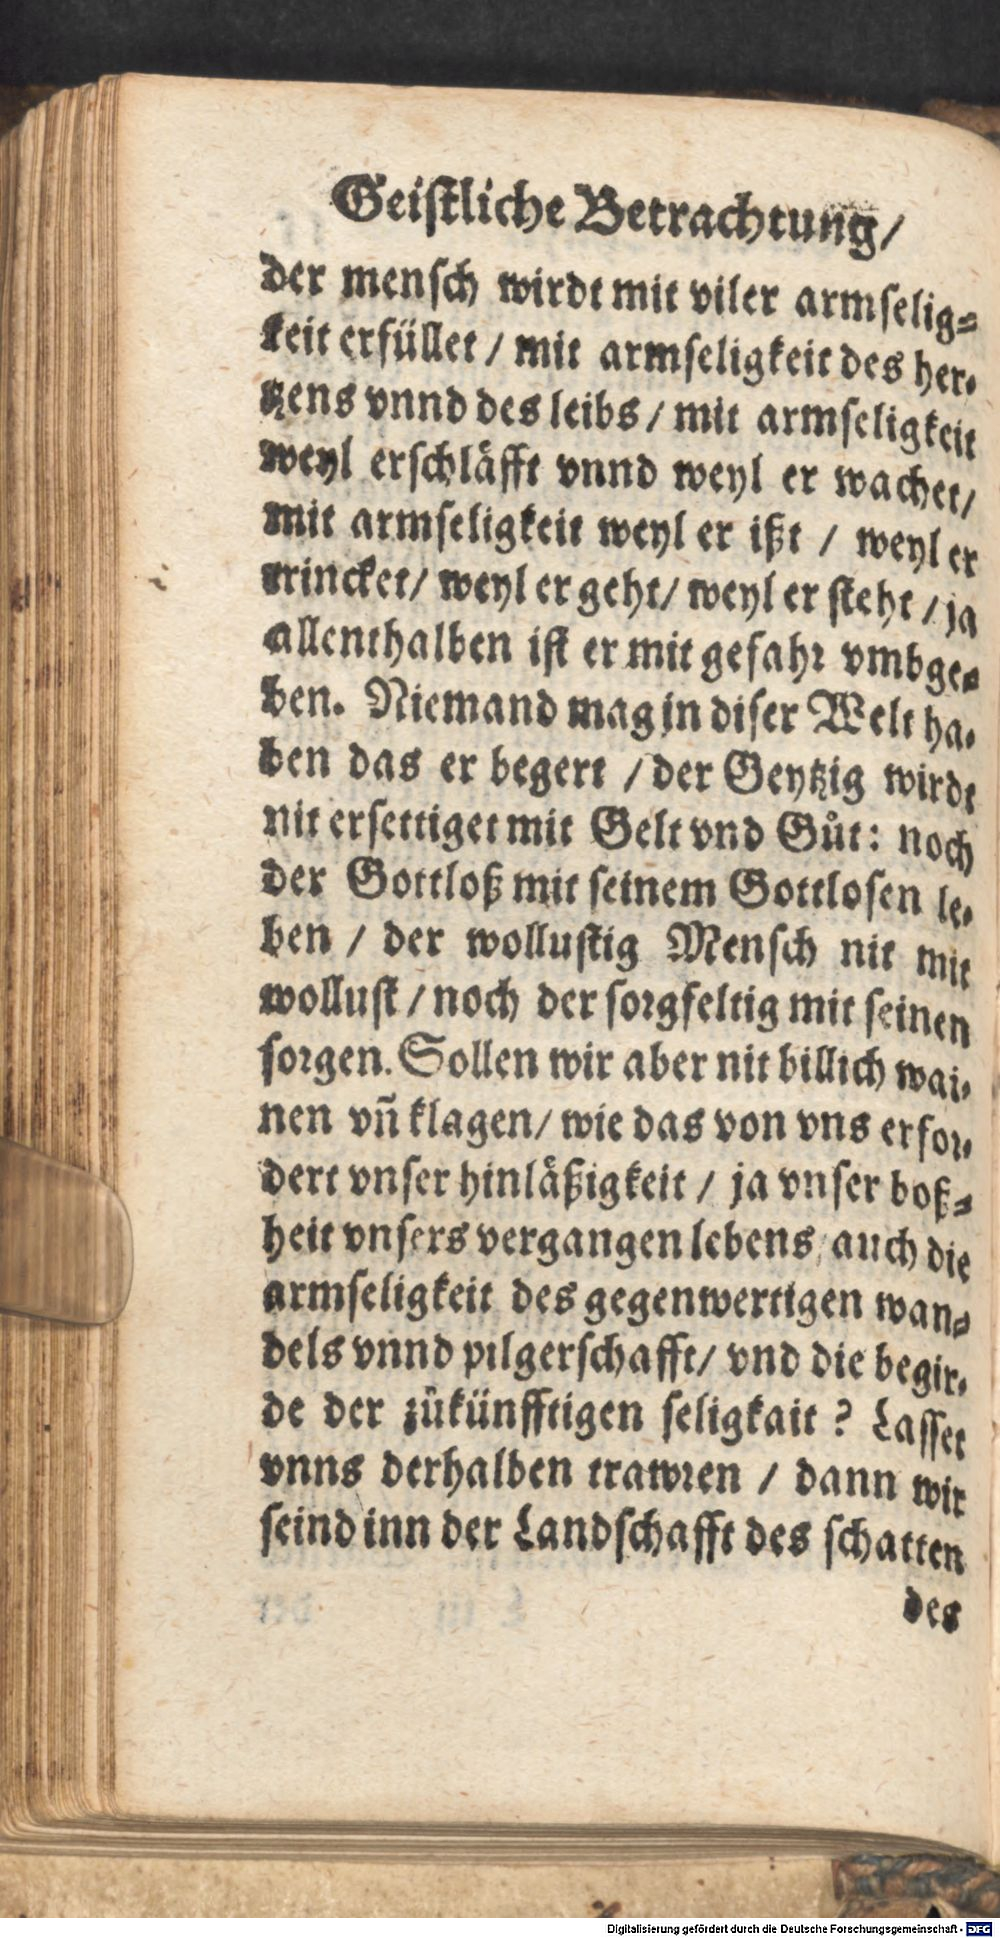 Geistliche Betrachtung/
der mensch wirdt mit viler armselig⸗
keit erfüllet / mit armseligkeit des her⸗
tzens vnnd des leibs / mit armseligkeit
weyl erschläfft vnnd weyl er wachet/
mit armseligkeit weyl er ißt / weyl er
trincket/ weyl er geht/ weyl er steht / ja
allenthalben ist er mit gefahr vmbge⸗
ben. Niemand mag in diser Welt ha⸗
ben das er begert / der Geytzig wirdt
nit ersettiget mit Gelt vnd Gůt: noch
der Gottloß mit seinem Gottlosen le⸗
ben / der wollustig Mensch nit mit
wollust / noch der sorgfeltig mit seinen
sorgen. Sollen wir aber nit billich wai⸗
nen vñ klagen/ wie das von vns erfor⸗
dert vnser hinläßigkeit / ja vnser boß⸗
heit vnsers vergangen lebens/ auch die
armseligkeit des gegenwertigen wan⸗
dels vnnd pilgerschafft/ vnd die begir⸗
de der zůkünfftigen seligkait ? Lasset
vnns derhalben trawren / dann wir
seind inn der Landschafft des schatten
des
Digitalisierung gefördert durch die Deutsche Forschungsgemeinschaft - DFG